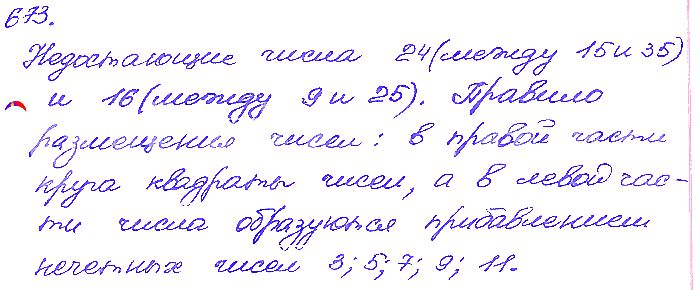 673.
Недостающие числа 24 (между 15 и 35)
и 16 (между 9 и 25). Правило
размещения чисел: в правой части
круга квадраты чисел, а в левой час-
ти числа образуются прибавлением
нечетных чисел 3; 5; 7; 9; 11.